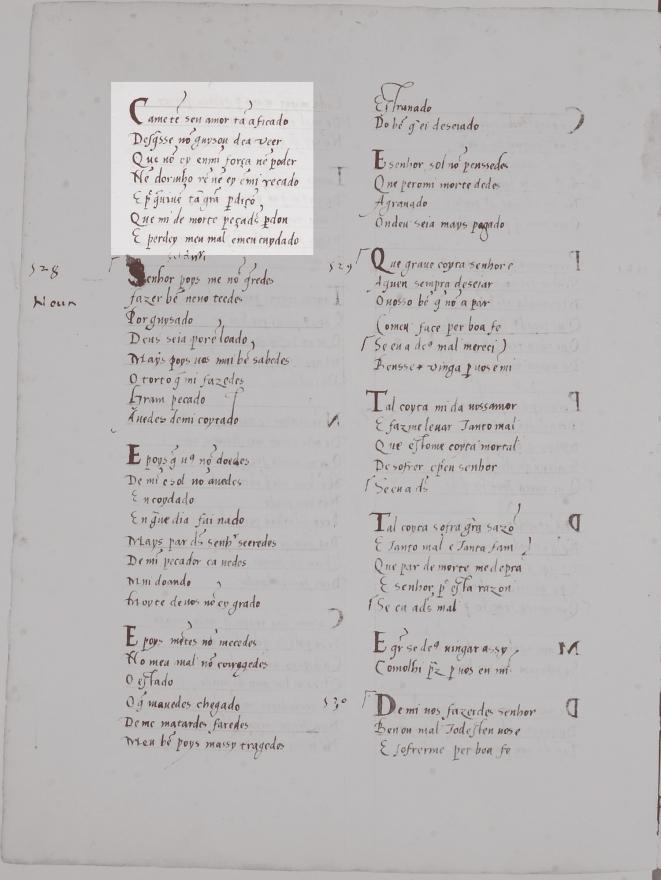 Came tẽ seu amor tã aficado
Desq̃sse nõ guysou dea veer
Que nõ ey enmi força nẽ poder
Nẽ dormho rẽ nẽ ey ẽmi recado
E p̃ q̃ uiue tã grã pdiçõ
Que mi de morte peçades pdon
E perdey meu mal emeu cuydado
528
Senhor poys me nõ q̃redes
fazer bẽ neno teedes
Por guysado
Deus seia porẽ loado
Mays poys uos mui bẽ sabedes
O torto q̃ mi fazedes
Gram pecado
Auedes demi coytado
E poys q̃ uꝰ nõ doedes
De mi e sol nõ auedes
En coydado
En q̃ue dia fui nado
Mays par ds senhʳ seeredes
De mi pecador ca uedes
Mui doando
E poys mẽtes nõ metedes
No meu mal nõ corregedes
O estado
O q̃ mauedes chegado
Deme matardes faredes
Meu bẽ poys massy tragedes
Estranado
Do bẽ q̃ ei deseiado
E senhor sol nõ penssedes
Que peromi morte dedes
Agranado
Ondeu seia mays pagado
529
Que graue coyta senhor e
Aquen sempra deseiar
O uosso bẽ q̃ nõ a par
Comeu face per boa fe
Se eu a deꝰ mal mereci
Bensse uinga p uos emi
Tal coyta mi da uossamor
E fazme leuar tanto mal
Que esto me coyta mortal
De sofrer epeu senhor
Se eu a ds
Tal coyta sofra grã sazõ
E tanto mal e tanta fam
Que par de morte medepra
E senhor p̃ esta razon
Se eu ads mal
E q̃r se deꝰ uingar assy
Comolhi p̃z p uos en mi
530
De mi uos fazerdes senhor
Ben ou mal todesten uos e
E sofrerme per boa fe